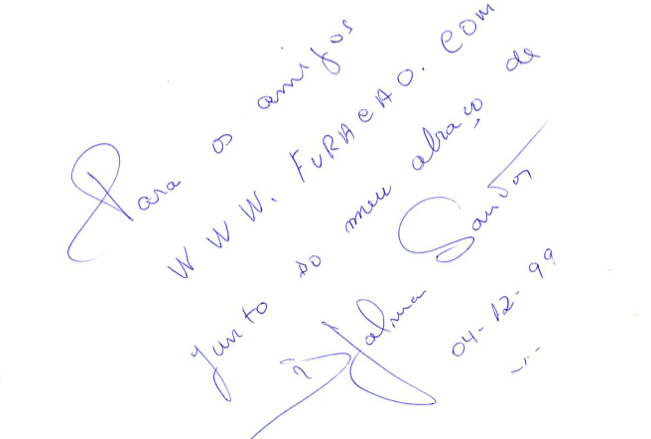 Para os amigos
WWW.FURACAO.COM
junto ao meu abraço de
Djalma Santos
04-12-99